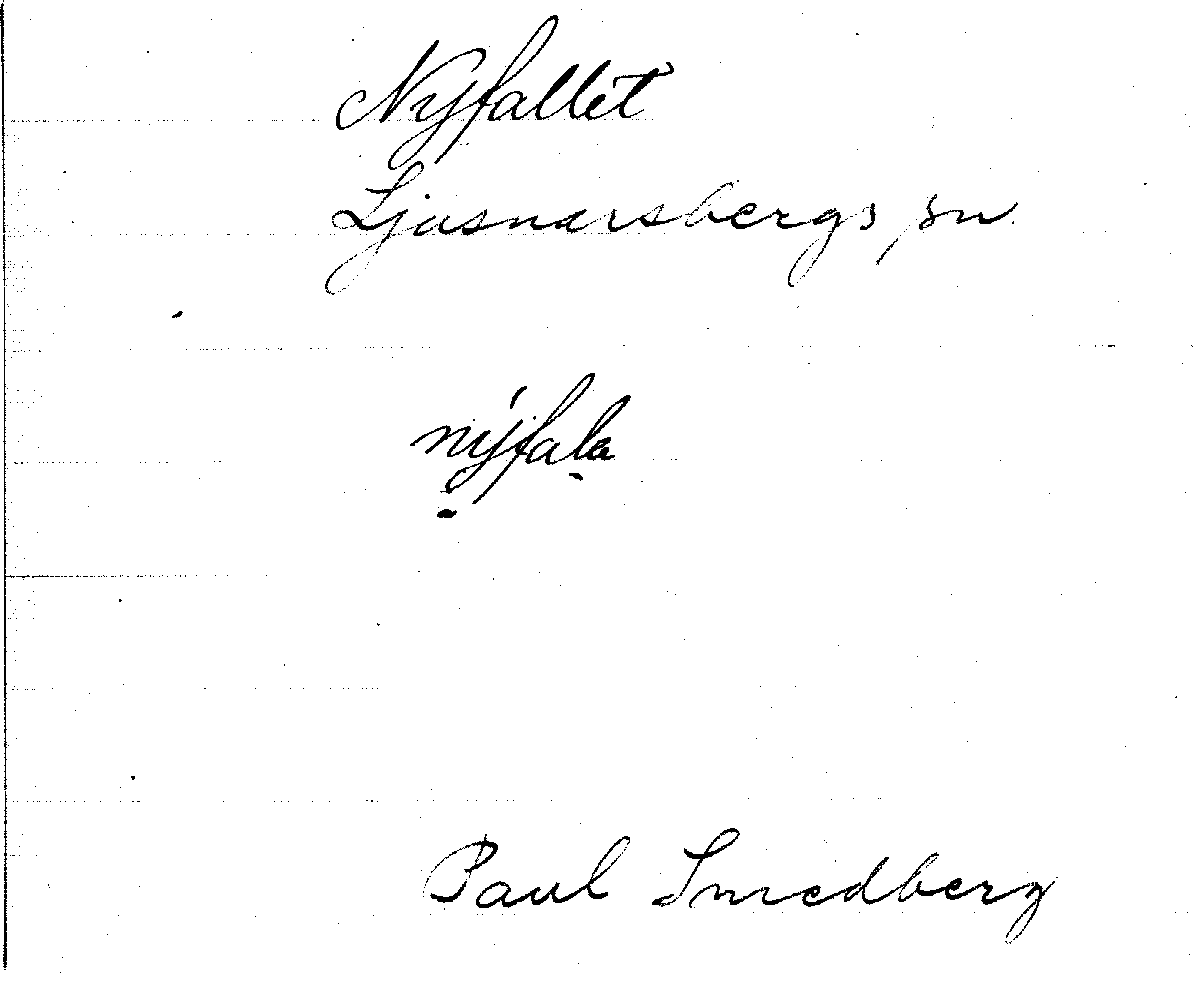 Nyfallet
Ljusnarsbergs sn
nýfala
Paul Smedberg